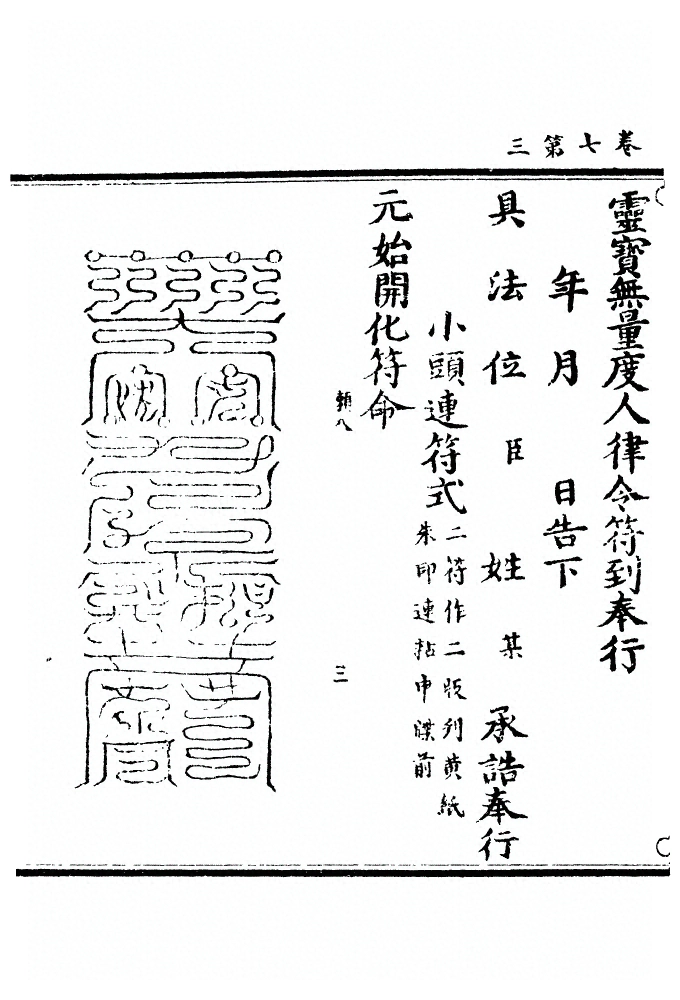 卷七第三
靈寶無量度人律令符到奉行
年月 日告下
具法位 臣 姓 某 承誥奉行
小頭連符式 二符作二版列黄紙
朱印連粘申牒前
元始開化符命
賴八
三